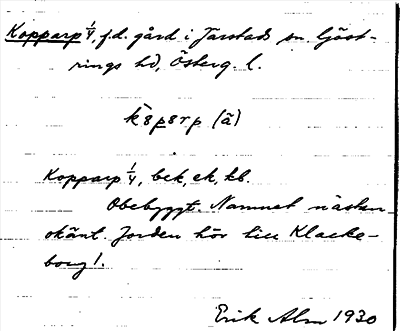 Kopparp 1/4, f.d. gård i Järstads sn. Göst-
rings hd, Österg. l.
kȍpȣrp (ä)
Kopparp 1/4, bek, ek, kb.
Obebyggt. Namnet nästan
okänt. Jorden hör till Klacke-
borg 1.
Erik Alm 1930